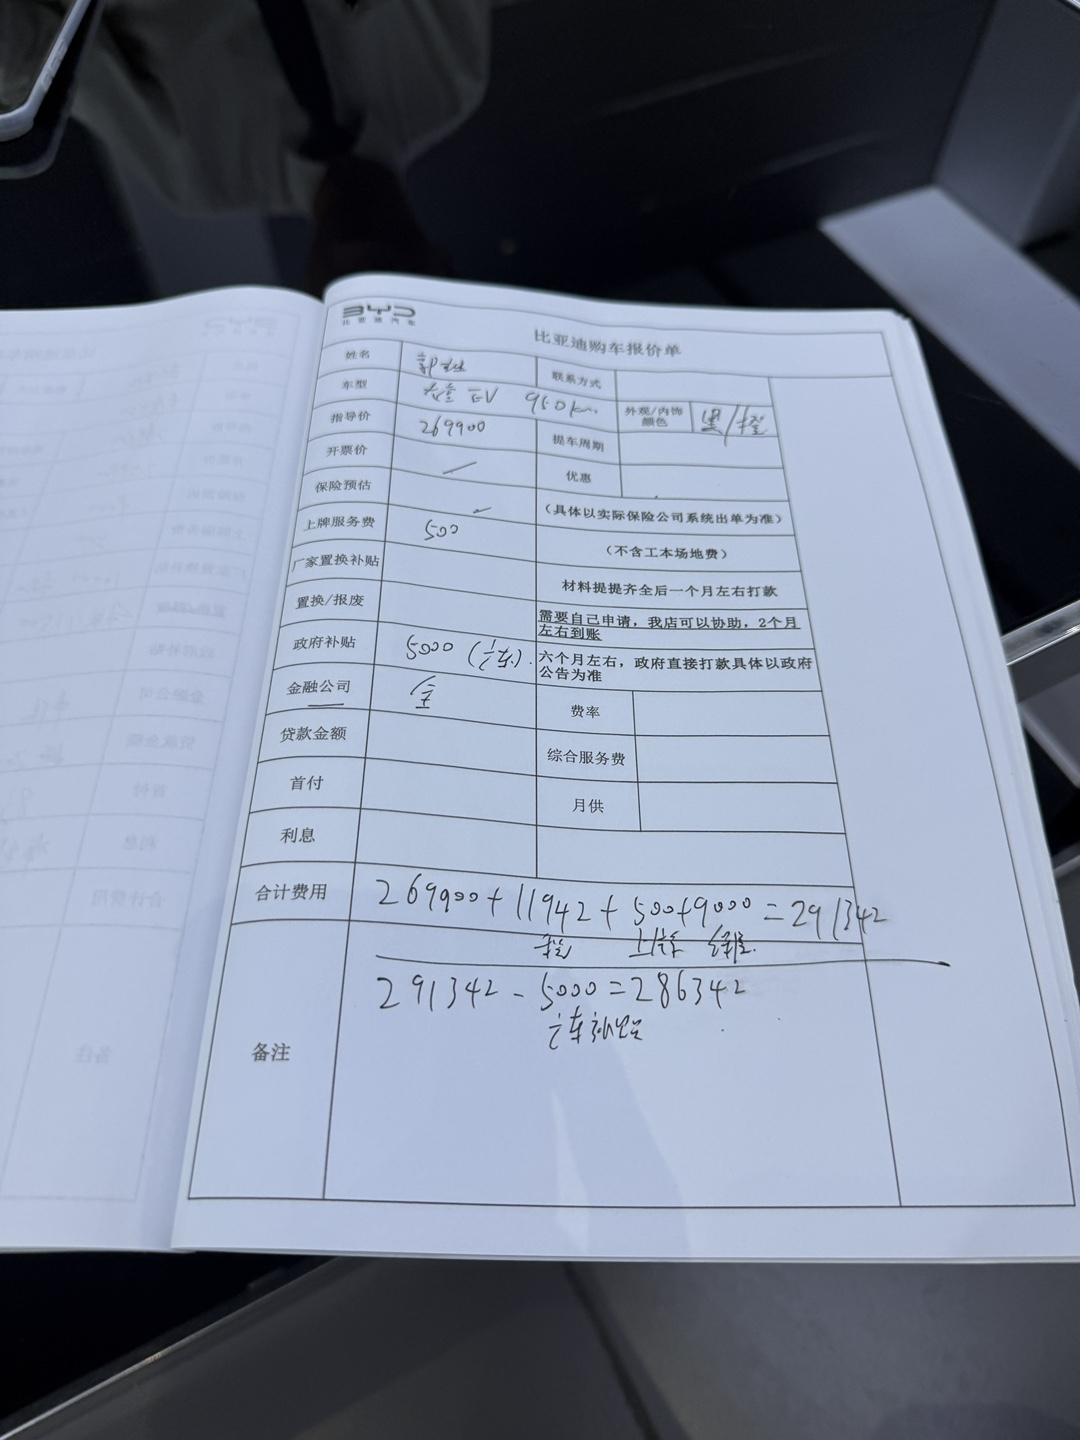 BYD
比亚迪汽车
比亚迪购车报价单
姓名 郭 联系方式
车型 大唐 EV 950km 外观/内饰颜色 黑/橙
指导价 269900 提车周期
开票价 优惠
保险预估 (具体以实际保险公司系统出单为准)
上牌服务费 500 (不含工本场地费)
厂家置换补贴 材料提提齐全后一个月左右打款
置换/报废 需要自己申请，我店可以协助，2个月左右到账
政府补贴 5000 (让车) 六个月左右，政府直接打款具体以政府公告为准
金融公司 全 费率
贷款金额 综合服务费
首付 月供
利息
合计费用 269900+11942+500+9000=291342
上牌 保险
备注 291342-5000=286342